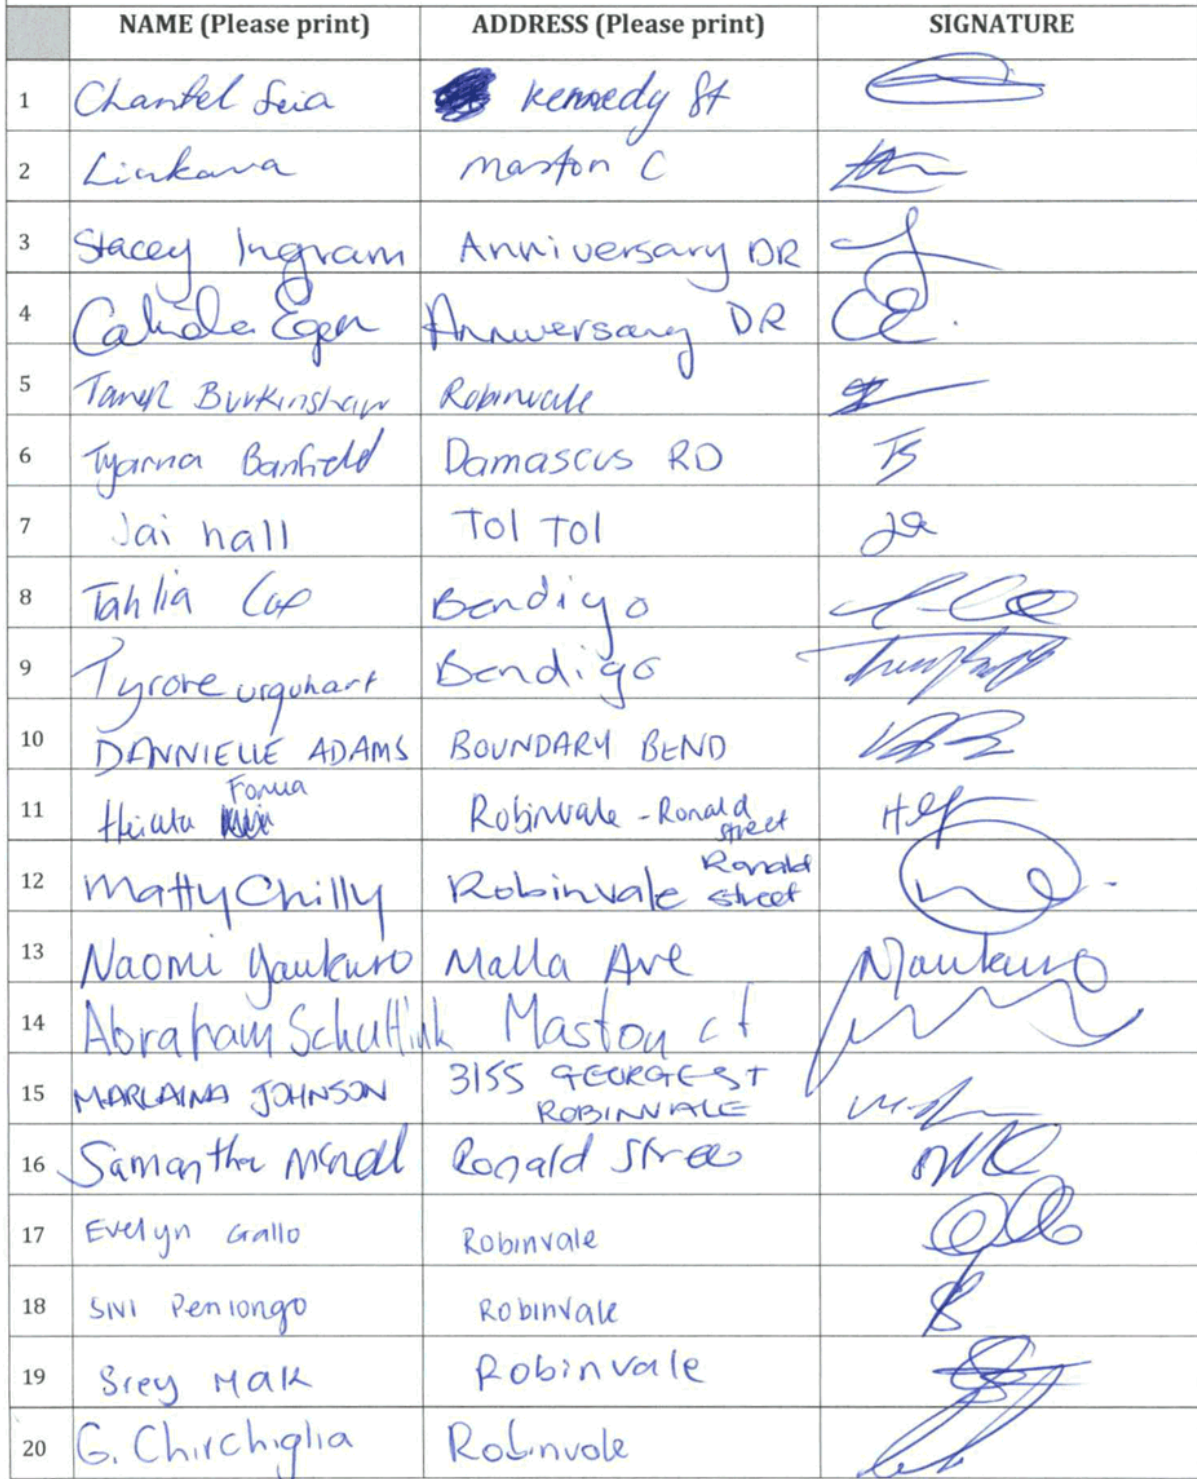 NAME (Please print) ADDRESS (Please print) SIGNATURE
1 Chantel Seia Kennedy St
2 Linkava Maston C
3 Stacey Ingram Anniversary DR
4 Anniversary DR CE.
5 Burkinshaw Robinvale
6 Tyarna Banfield Damascus RD TB
7 Jai hall Tol Tol
8 Tahlia Cox Bendigo
9 Tyrone urquhart Bendigo
10 DANNIELLE ADAMS BOUNDARY BEND
Fonua
11 Robinvale - Ronald
street
Ronald
12 Matty Chilly Robinvale street
13 Naomi Yaukuro Malla Ave
14 Abraham Schultink Maston ct
15 MARLAINA JOHNSON 3155 GEORGE ST
ROBINVALE
16 Samantha Ronald Stree
17 Evelyn Grallo Robinvale
18 SIVI Peniongo Robinvale
19 Srey Mak Robinvale
20 G. Chirchiglia Robinvale